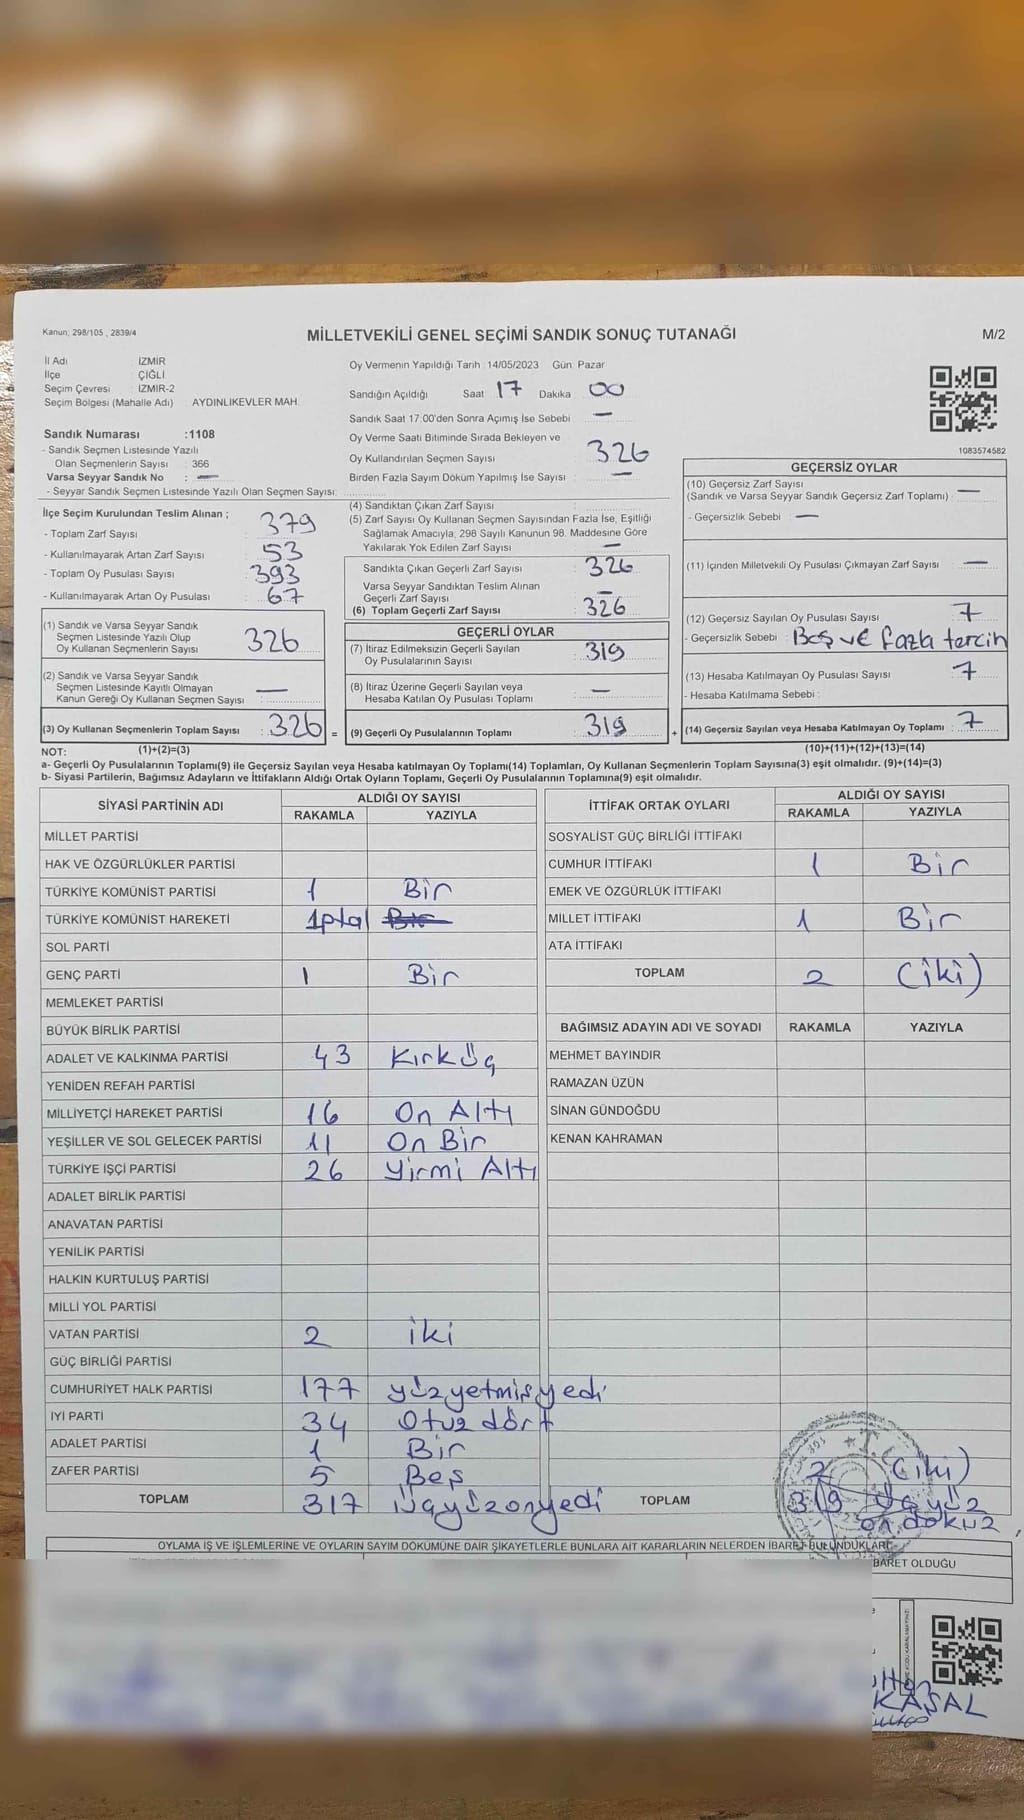 Kanun; 298/105 , 2839/4
MİLLETVEKİLİ GENEL SEÇİMİ SANDIK SONUÇ TUTANAĞI
M/2
İl Adı : İZMİR
İlçe : ÇİĞLİ
Seçim Çevresi : İZMİR-2
Seçim Bölgesi (Mahalle Adı) : AYDINLIKEVLER MAH.
Sandık Numarası :1108
- Sandık Seçmen Listesinde Yazılı
Olan Seçmenlerin Sayısı : 366
Varsa Seyyar Sandık No : —
- Seyyar Sandık Seçmen Listesinde Yazılı Olan Seçmen Sayısı:
Oy Vermenin Yapıldığı Tarih :14/05/2023 Gün: Pazar
Sandığın Açıldığı Saat 17 Dakika 00
Sandık Saat 17:00'den Sonra Açımış İse Sebebi : —
Oy Verme Saati Bitiminde Sırada Bekleyen ve
Oy Kullandırılan Seçmen Sayısı : 326
Birden Fazla Sayım Döküm Yapılmış İse Sayısı : —
1083574582
İlçe Seçim Kurulundan Teslim Alınan ;
- Toplam Zarf Sayısı : 379
- Kullanılmayarak Artan Zarf Sayısı : 53
- Toplam Oy Pusulası Sayısı : 393
- Kullanılmayarak Artan Oy Pusulası : 67
(1) Sandık ve Varsa Seyyar Sandık
Seçmen Listesinde Yazılı Olup
Oy Kullanan Seçmenlerin Sayısı : 326
(2) Sandık ve Varsa Seyyar Sandık
Seçmen Listesinde Kayıtlı Olmayan
Kanun Gereği Oy Kullanan Seçmen Sayısı : —
(3) Oy Kullanan Seçmenlerin Toplam Sayısı : 326 =
(1)+(2)=(3)
(4) Sandıktan Çıkan Zarf Sayısı :
(5) Zarf Sayısı Oy Kullanan Seçmen Sayısından Fazla İse, Eşitliği
Sağlamak Amacıyla, 298 Sayılı Kanunun 98. Maddesine Göre
Yakılarak Yok Edilen Zarf Sayısı : —
Sandıkta Çıkan Geçerli Zarf Sayısı : 326
Varsa Seyyar Sandıktan Teslim Alınan
Geçerli Zarf Sayısı : —
(6) Toplam Geçerli Zarf Sayısı : 326
GEÇERLİ OYLAR
(7) İtiraz Edilmeksizin Geçerli Sayılan
Oy Pusulalarının Sayısı : 319
(8) İtiraz Üzerine Geçerli Sayılan veya
Hesaba Katılan Oy Pusulası Toplamı : —
(9) Geçerli Oy Pusulalarının Toplamı : 319 +
GEÇERSİZ OYLAR
(10) Geçersiz Zarf Sayısı
(Sandık ve Varsa Seyyar Sandık Geçersiz Zarf Toplamı) : —
- Geçersizlik Sebebi : —
(11) İçinden Milletvekili Oy Pusulası Çıkmayan Zarf Sayısı : —
(12) Geçersiz Sayılan Oy Pusulası Sayısı : 7
- Geçersizlik Sebebi : Beş ve fazla tercih
(13) Hesaba Katılmayan Oy Pusulası Sayısı : 7
- Hesaba Katılmama Sebebi :
(14) Geçersiz Sayılan veya Hesaba Katılmayan Oy Toplamı : 7
(10)+(11)+(12)+(13)=(14)
NOT:
a- Geçerli Oy Pusulalarının Toplamı(9) ile Geçersiz Sayılan veya Hesaba katılmayan Oy Toplamı(14) Toplamları, Oy Kullanan Seçmenlerin Toplam Sayısına(3) eşit olmalıdır. (9)+(14)=(3)
b- Siyasi Partilerin, Bağımsız Adayların ve İttifakların Aldığı Ortak Oyların Toplamı, Geçerli Oy Pusulalarının Toplamına(9) eşit olmalıdır.
SİYASİ PARTİNİN ADI ALDIĞI OY SAYISI
RAKAMLA YAZIYLA
MİLLET PARTİSİ
HAK VE ÖZGÜRLÜKLER PARTİSİ
TÜRKİYE KOMÜNİST PARTİSİ 1 Bir
TÜRKİYE KOMÜNİST HAREKETİ İptal Bir
SOL PARTİ
GENÇ PARTİ 1 Bir
MEMLEKET PARTİSİ
BÜYÜK BİRLİK PARTİSİ
ADALET VE KALKINMA PARTİSİ 43 Kırküç
YENİDEN REFAH PARTİSİ
MİLLİYETÇİ HAREKET PARTİSİ 16 On Altı
YEŞİLLER VE SOL GELECEK PARTİSİ 11 On Bir
TÜRKİYE İŞÇİ PARTİSİ 26 Yirmi Altı
ADALET BİRLİK PARTİSİ
ANAVATAN PARTİSİ
YENİLİK PARTİSİ
HALKIN KURTULUŞ PARTİSİ
MİLLİ YOL PARTİSİ
VATAN PARTİSİ 2 iki
GÜÇ BİRLİĞİ PARTİSİ
CUMHURİYET HALK PARTİSİ 177 yüzyetmişyedi
İYİ PARTİ 34 Otuz dört
ADALET PARTİSİ 1 Bir
ZAFER PARTİSİ 5 Beş
TOPLAM 317 üçyüzonyedi
İTTİFAK ORTAK OYLARI ALDIĞI OY SAYISI
RAKAMLA YAZIYLA
SOSYALİST GÜÇ BİRLİĞİ İTTİFAKI
CUMHUR İTTİFAKI 1 Bir
EMEK VE ÖZGÜRLÜK İTTİFAKI
MİLLET İTTİFAKI 1 Bir
ATA İTTİFAKI
TOPLAM 2 (iki)
BAĞIMSIZ ADAYIN ADI VE SOYADI RAKAMLA YAZIYLA
MEHMET BAYINDIR
RAMAZAN ÜZÜN
SİNAN GÜNDOĞDU
KENAN KAHRAMAN
2 (iki)
TOPLAM 319 üçyüz
on dokuz
OYLAMA İŞ VE İŞLEMLERİNE VE OYLARIN SAYIM DÖKÜMÜNE DAİR ŞİKAYETLERLE BUNLARA AİT KARARLARIN NELERDEN İBARET BULUNDUKLARI
BARET OLDUĞU
KASAL